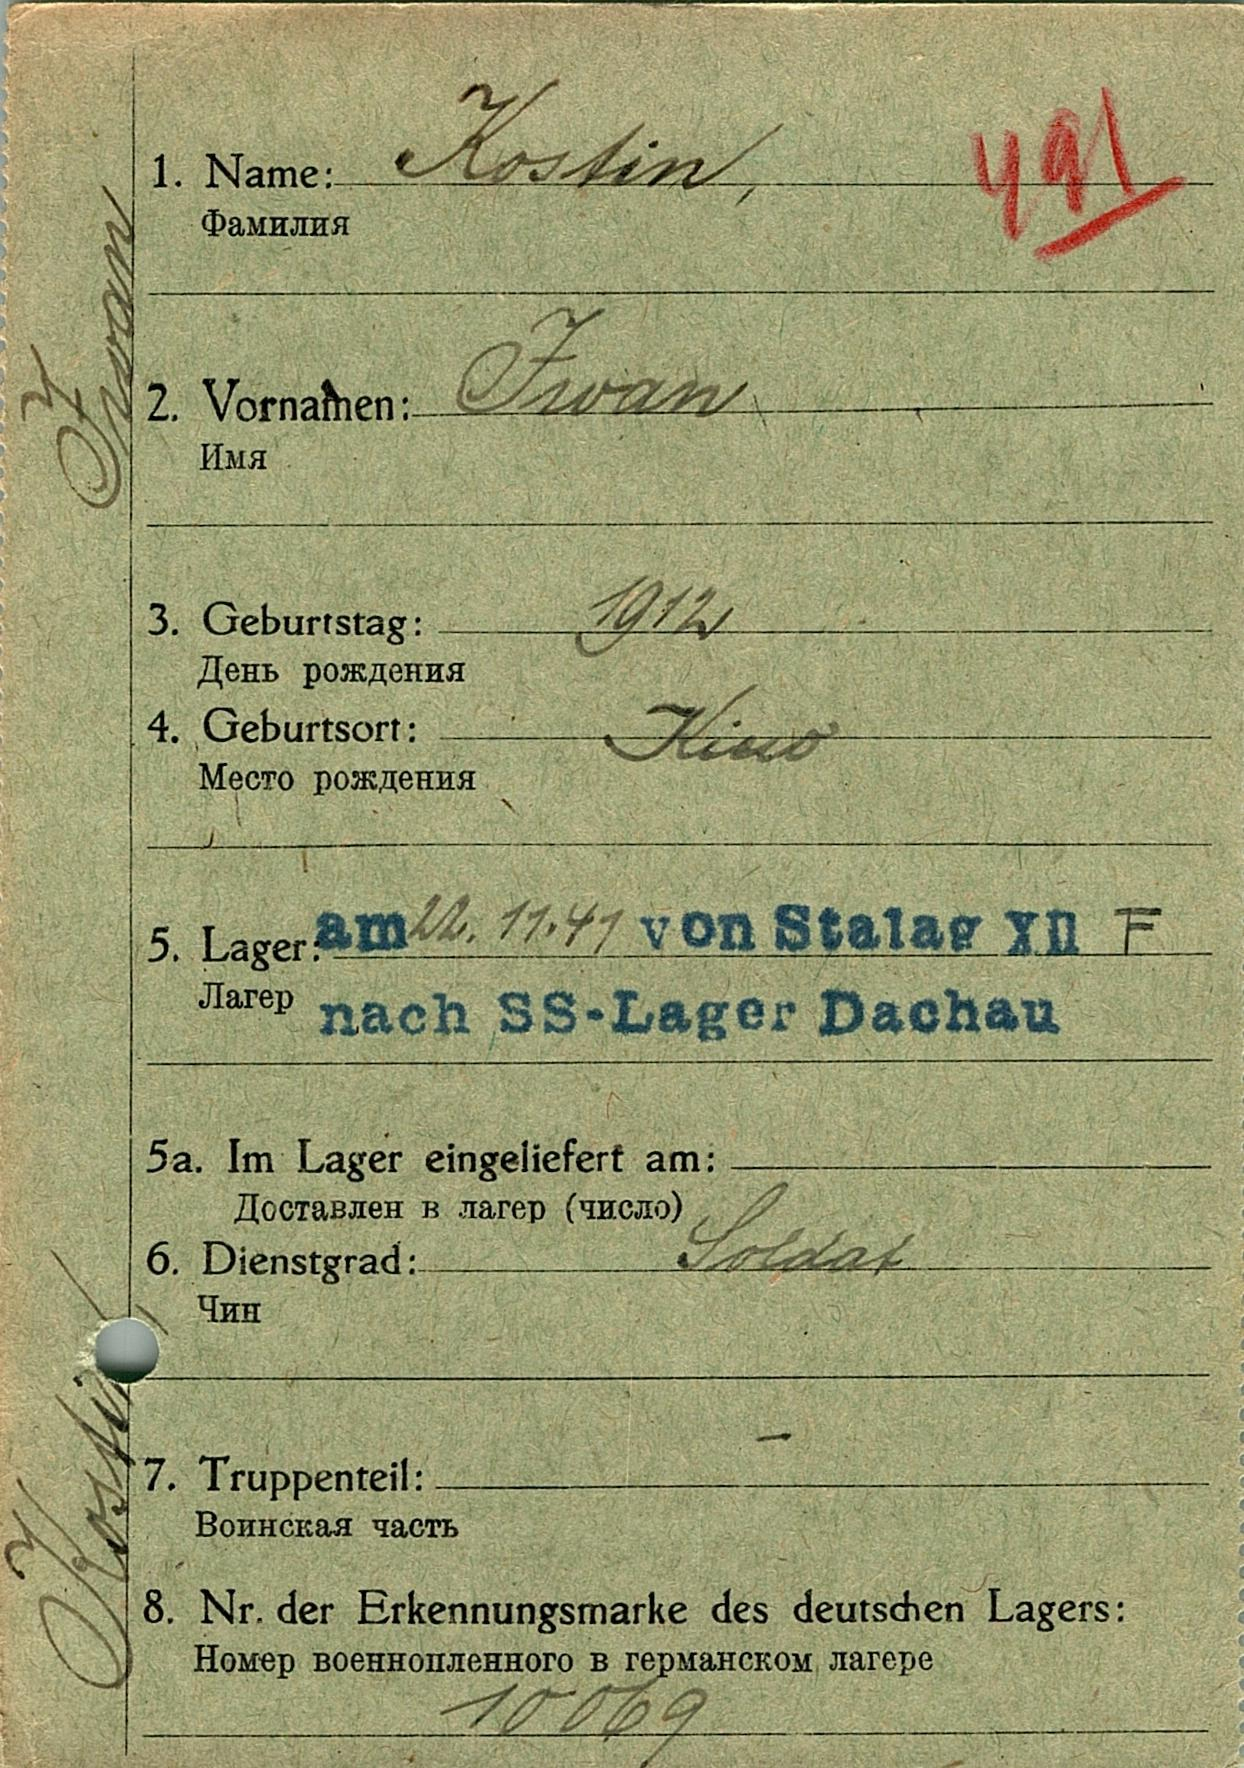 491
1. Name: Kostin,
Фамилия
2. Vornamen: Iwan
Имя
3. Geburtstag: 1912
День рождения
4. Geburtsort:
Место рождения
5. Lager: am 22.11.41 von Stalag XII F
Лагер nach SS-Lager Dachau
5a. Im Lager eingeliefert am:
Доставлен в лагер (число)
6. Dienstgrad: Soldat
Чин
7. Truppenteil: –
Воинская часть
8. Nr. der Erkennungsmarke des deutschen Lagers:
Номер военнопленного в германском лагере
10069
Kostin, Iwan